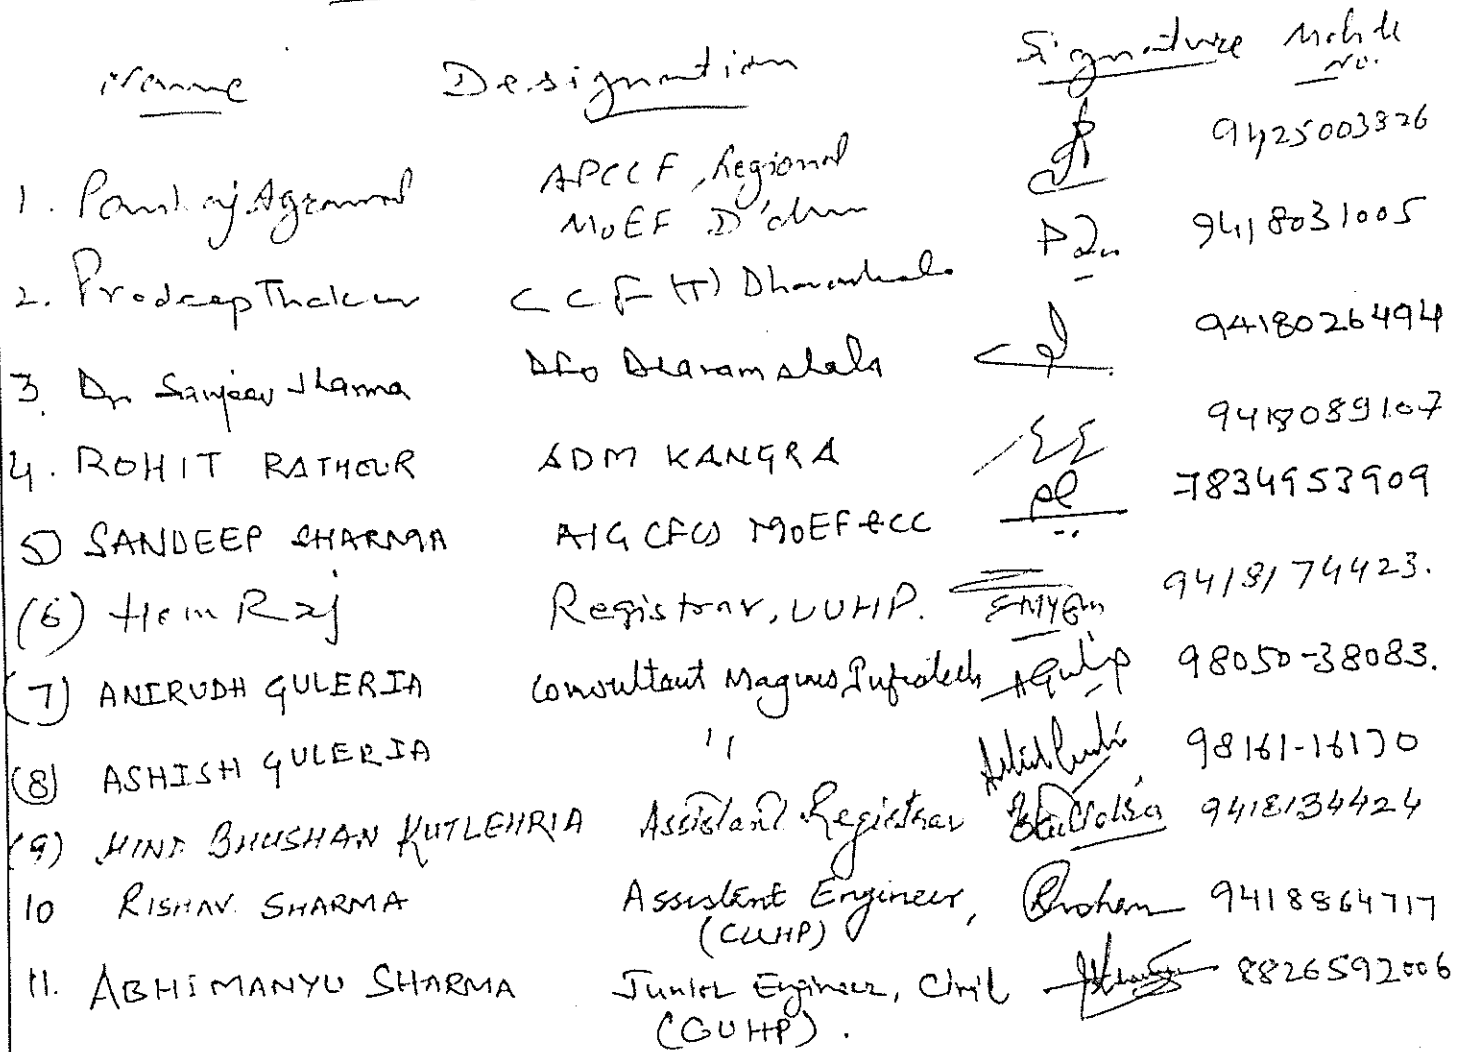 Name Designation Signature Mobile No.
1. Pankaj Agrawal APCCF, Regional MoEF D'dun 9425003326
2. Pradeep Thakur CCF (T) Dharamshala 9418031005
3. Dr Sanjeev Sharma DFO Dharamshala 9418026494
4. ROHIT RATHOUR ADM KANGRA 9418089107
5) SANDEEP SHARMA AIG CFC) MOEF&CC 7834953909
(6) Hem Raj Registrar, CUHP. 9418174423.
(7) ANIRUDH GULERIA Consultant Magnus Infratech 98050-38083.
(8) ASHISH GULERIA " 98161-16170
(9) HIND BHUSHAN KUTLEHRIA Assistant Registrar 9418134424
10 RISHAV SHARMA Assistant Engineer, (CUHP) 9418864717
11. ABHIMANYU SHARMA Junior Engineer, Civil (CUHP). 8826592006